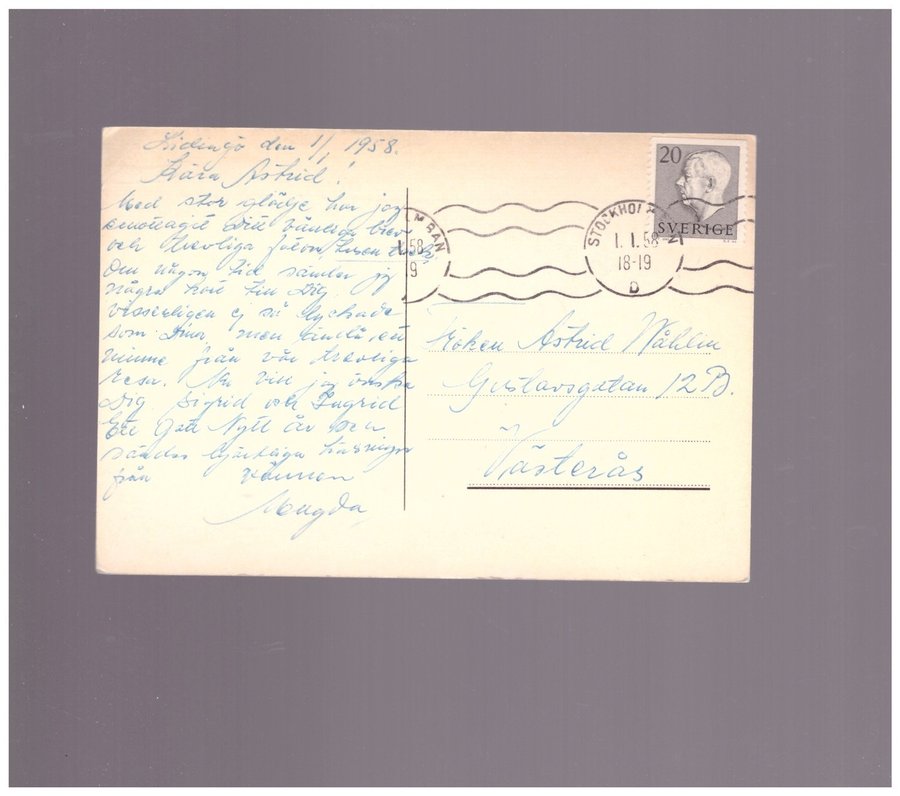 Lidingö den 1/1 1958.
Kära Astrid!
Med stor glädje har jag
emottagit Ditt vänliga brev
och trevliga foton, tusen tack.
Om någon tid sänder jag
några kort till Dig
visserligen ej så lyckade
som Dina, men ändå ett
minne från vår trevliga
resa. Nu vill jag önska
Dig Sigrid och Ingrid
Ett Gott Nytt År och
sändes hjärtliga hälsningar
från vännen
Magda
20
SVERIGE
STOCKHOLM BAN
1. 1. 58
18-19
D
M BAN
1.58
9
Fröken Astrid Wåhlin
Gustavsgatan 12 B.
Västerås